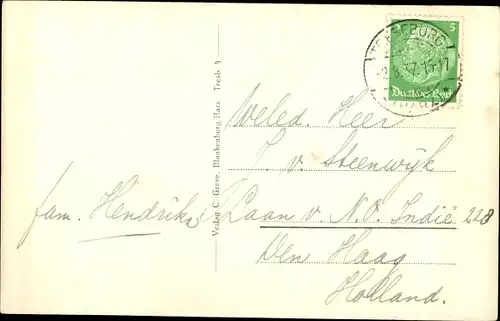 TRESEBURG
2.8.37.15-17
(HARZ)
5
Deutsches Reich
Verlag C. Greve, Blankenburg Harz. Tresb. 9
Weled. Heer
J. v. Steenwijk
fam. Hendriks
Laan v. N.O. Indië 228
Den Haag
Holland.